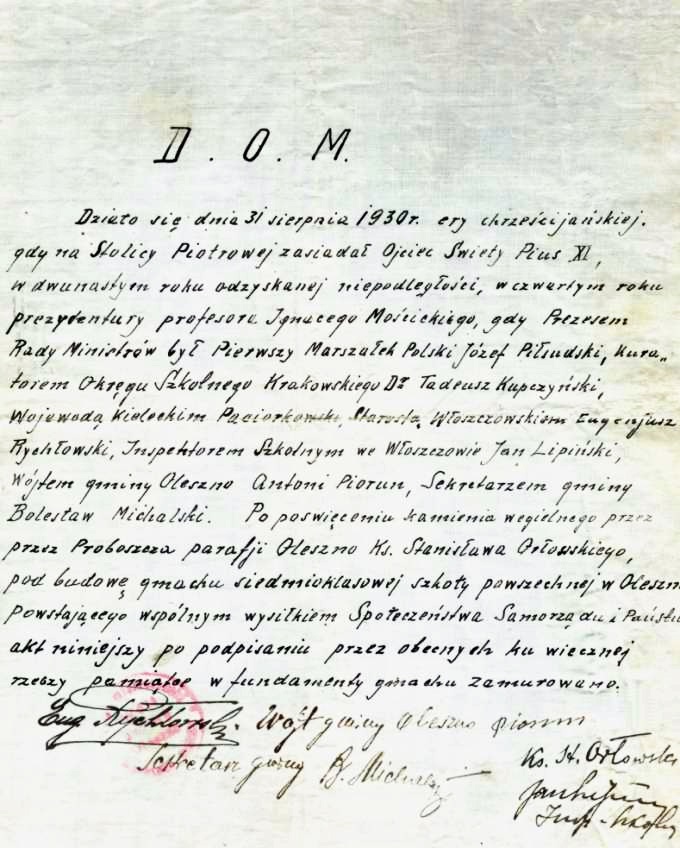 D. O. M.
Działo się dnia 31 sierpnia 1930 r. ery chrześcijańskiej.
gdy na Stolicy Piotrowej zasiadał Ojciec Swięty Pius XI,
w dwunastym roku odzyskanej niepodległości, w czwartym roku
prezydentury profesora Ignacego Mościckiego, gdy Prezesem
Rady Ministrów był Pierwszy Marszałek Polski Józef Piłsudski, kura„
torem Okręgu Szkolnego Krakowskiego Dr Tadeusz Kupczyński,
Wojewodą Kieleckim Paciorkowski, Starostą Włoszczowskiem Eugenjusz
Rychłowski, Inspektorem Szkolnym we Włoszczowie Jan Lipiński,
Wójtem gminy Oleszno Antoni Piorun, Sekretarzem gminy
Bolesław Michalski. Po poswięceniu kamienia węgielnego przez
przsz Proboszcza parafji Oleszno Ks. Stanisława Orłowskiego,
pod budowę gmachu siedmioklasowej szkoły powszechnej w Oleszn
Powstającego wspólnym wysiłkiem Społeczeństwa Samorządu i Państw
akt niniejszy po podpisaniu przez obecnych ku wiecznej
rzeczy pamiątce w fundamenty gmachu zamurowano.
Eug. Rychłowski. Wójt gminy Oleszno Piorun
Sekretarz gminy B. Michalski
Ks. St. Orłowski
Jan Lipiński
Insp. Szkolny